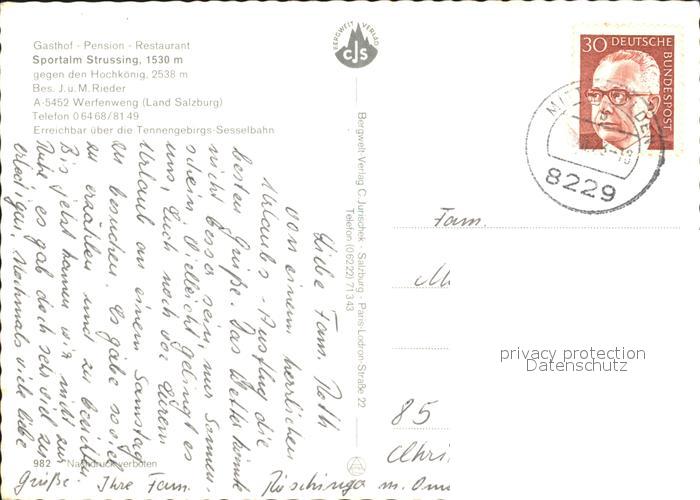 Gasthof - Pension - Restaurant
Sportalm Strussing, 1530 m
gegen den Hochkönig, 2538 m
Bes. J. u. M. Rieder
A-5452 Werfenweng (Land Salzburg)
Telefon 06468/8149
Erreichbar über die Tennengebirgs-Sesselbahn
BERGWELT VERLAG
CJS
30 DEUTSCHE BUNDESPOST
8229
Bergwelt-Verlag C. Jurischek - Salzburg - Paris-Lodron-Straße 22
Telefon (06222) 71343
Liebe Fam. Roth
von einem herrlichen
Urlaubs-Ausflug die
besten Grüße. Das Wetter könnte
nicht besser sein, nur Sonnen-
schein. Vielleicht gelingt es
uns, Euch noch vor Eurem
Urlaub an einem Samstag
zu besuchen. Es gäbe so viel
zu erzählen und zu
Bis jetzt kamen wir nicht zur
Ruhe es gab doch sehr viel zu
erledigen. Nochmals viele liebe
Grüße. Ihre Fam.
Fam.
85
privacy protection
Datenschutz
982 Nachdruck verboten